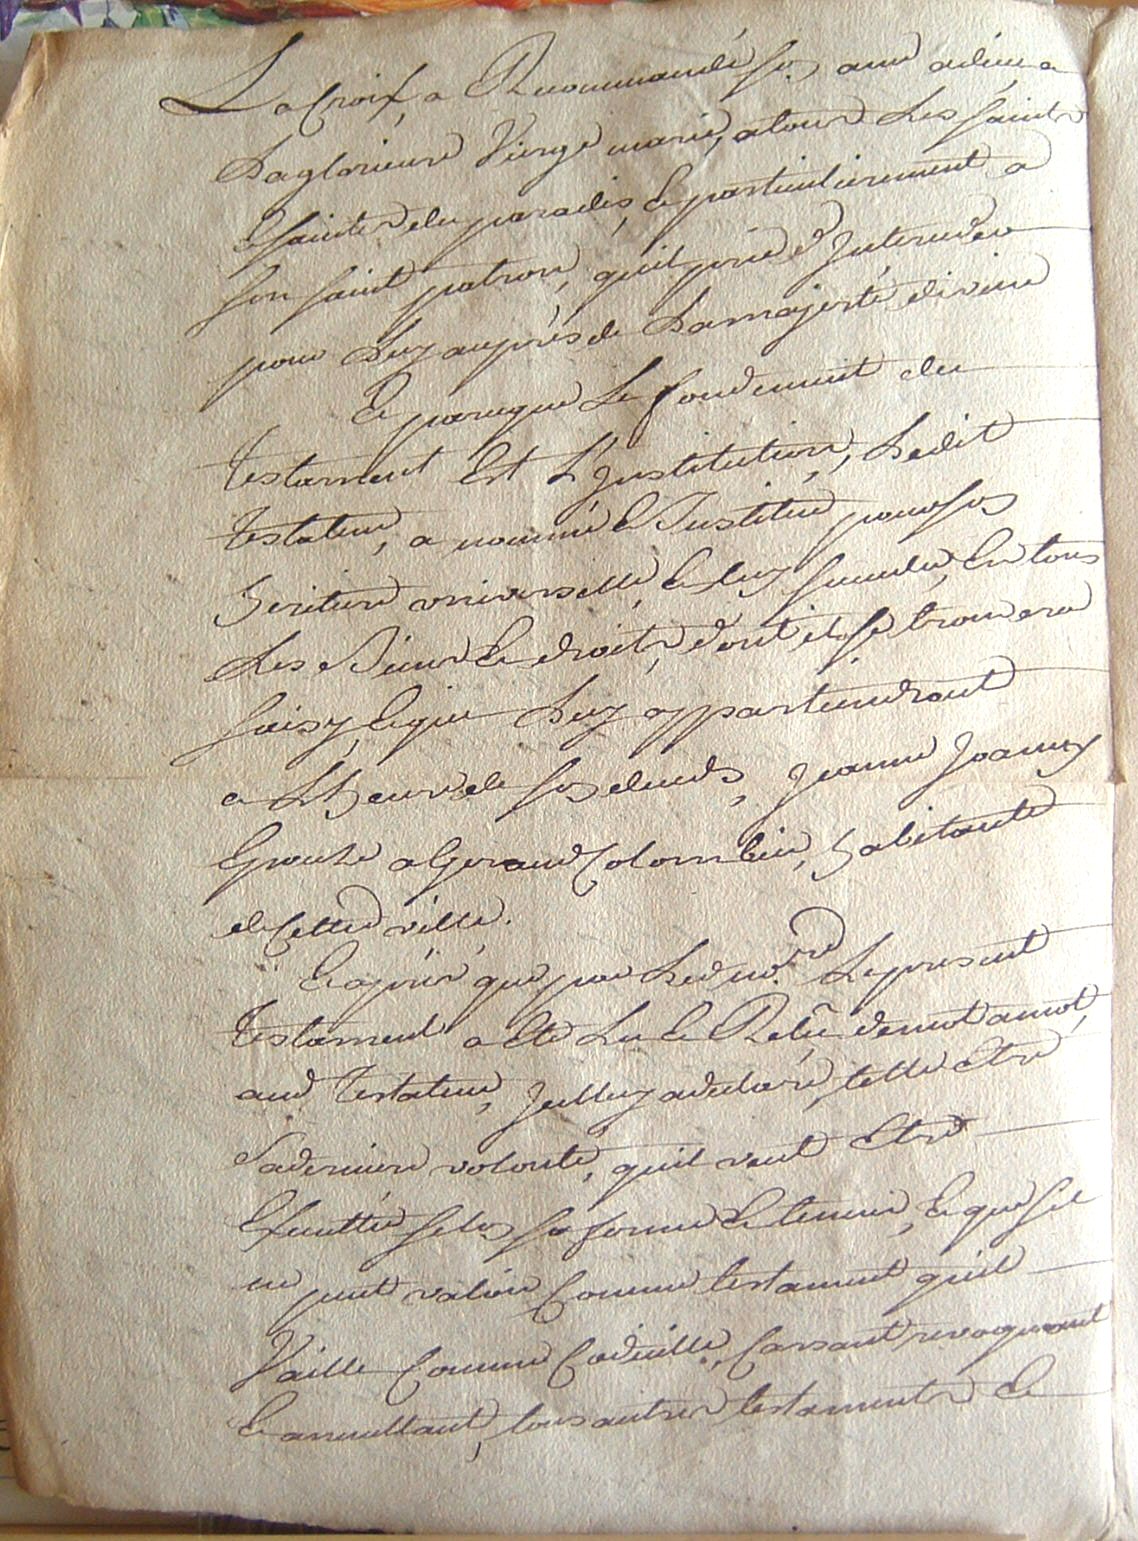 La Croix, a Recommandé son ame a dieu a
La glorieuse Vierge marie, a tous Les saints
& saintes du paradis, & particulierement a
son saint patron, quil prie d'Interceder
pour Luy aupres de La majesté divine
Et parceque Le fondement du
testament Est L'Institution, Ledit
testateur, a nommé & Institué pour son
heritiere universelle, & luy succeder En tous
Les Biens & droits dont il se trouvera
saisy, & qui Luy appartiendront
a L'heure de son deceds, Jeanne Joanny
Epouse a Geraud Colombier, habitante
de Cette ville.
Et apres que par Led. no.re Le present
testament a eté Lu & Relû de mot a mot,
aud. testateur, Jcelluy a declaré, telle Etre
sa derniere volonté, quil veut Etre
Executtée selon sa forme & teneur, & que sil
ne peut valoir Comme testament quil
Vaille Comme Codicille, Cassant, revoquant
& annullant, tous autres testaments &